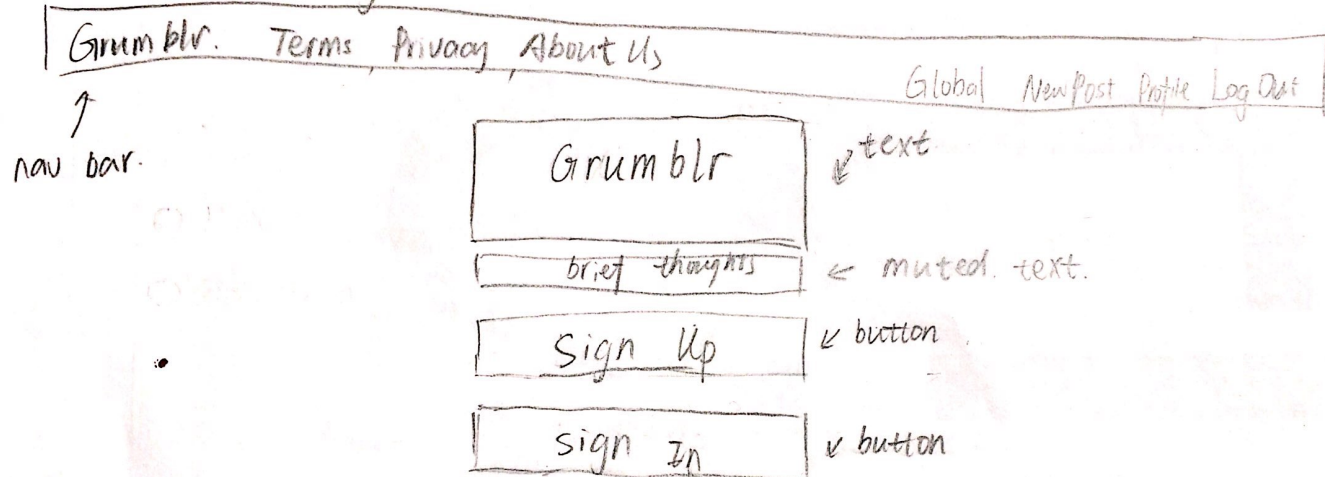 Grumblr. Terms Privacy About Us
Global New Post Profile Log Out
nav bar.
Grumblr
text
brief thoughts
muted. text.
Sign Up
button
Sign In
button